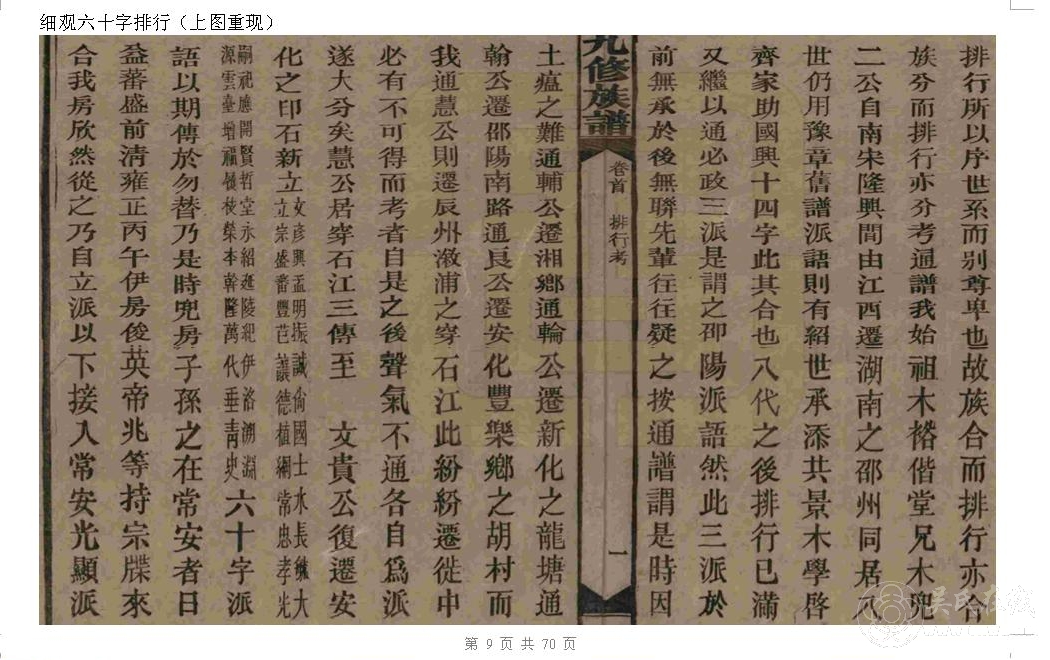 细观六十字排行（上图重现）
排行所以序世系而别尊卑也故族合而排行亦合
族分而排行亦分考通譜我始祖木裕偕堂兄木兜
二公自南宋隆興間由江西遷湖南之邵州同居八
世仍用豫章舊譜派語則有紹世承添共景木學啓
齊家助國興十四字此其合也八代之後排行已滿
又繼以通必政三派是謂之邵陽派語然此三派於
前無承於後無聯先輩往往疑之按通譜謂是時因
九修族譜
卷首 排行考
一
土瘟之難通輔公遷湘鄉通輪公遷新化之龍塘通
翰公遷邵陽南路通良公遷安化豐樂鄉之胡村而
我通慧公則遷辰州溆浦之穿石江此紛紛遷徙中
必有不可得而考者自是之後聲氣不通各自為派
遂大分矣慧公居穿石江三傳至 文貴公復遷安
化之印石新立文彥興孟明振誠尚國士水長繼大
立宗盛啚豐芑讓德植綱常忠孝光
嗣祀應開賢哲堂永紹延陵紀伊洛溯淵
源雲臺增福祿枝榮本幹隆萬代垂靑史六十字派
語以期傳於勿替乃是時兜房子孫之在常安者日
益蕃盛前清雍正丙午伊房俊英帝兆等持宗牒來
合我房欣然從之乃自立派以下接入常安光顯派
吴氏在线
第 9 页 共 70 页